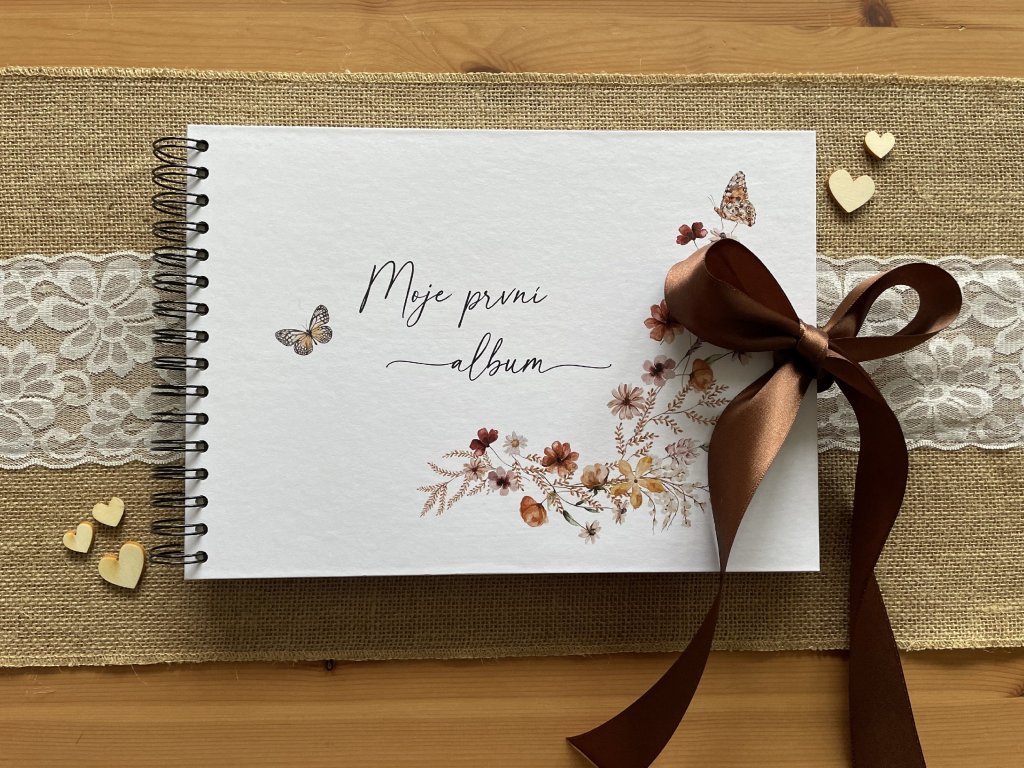 Moje první
album